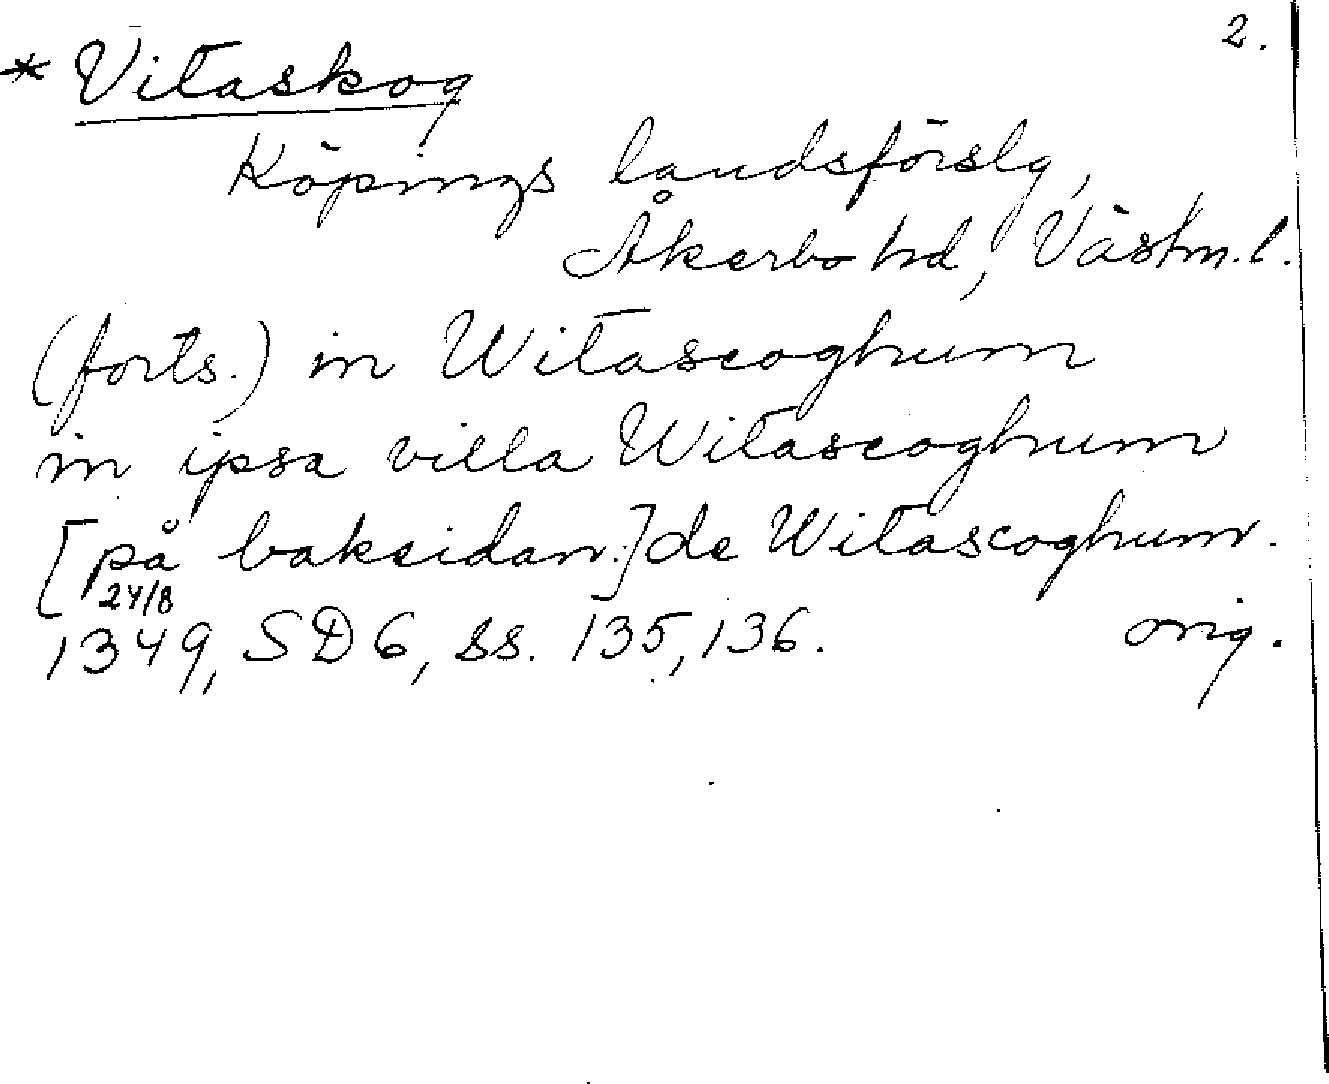 2.
* Vitaskog
Köpings landsförslg,
Åkerbo hd, Västm. l.
(forts.) in Witascoghum
in ipsa villa Witascoghum
[på baksidan:] de Witascoghum.
24/8
1349, SD 6, ss. 135, 136. orig.